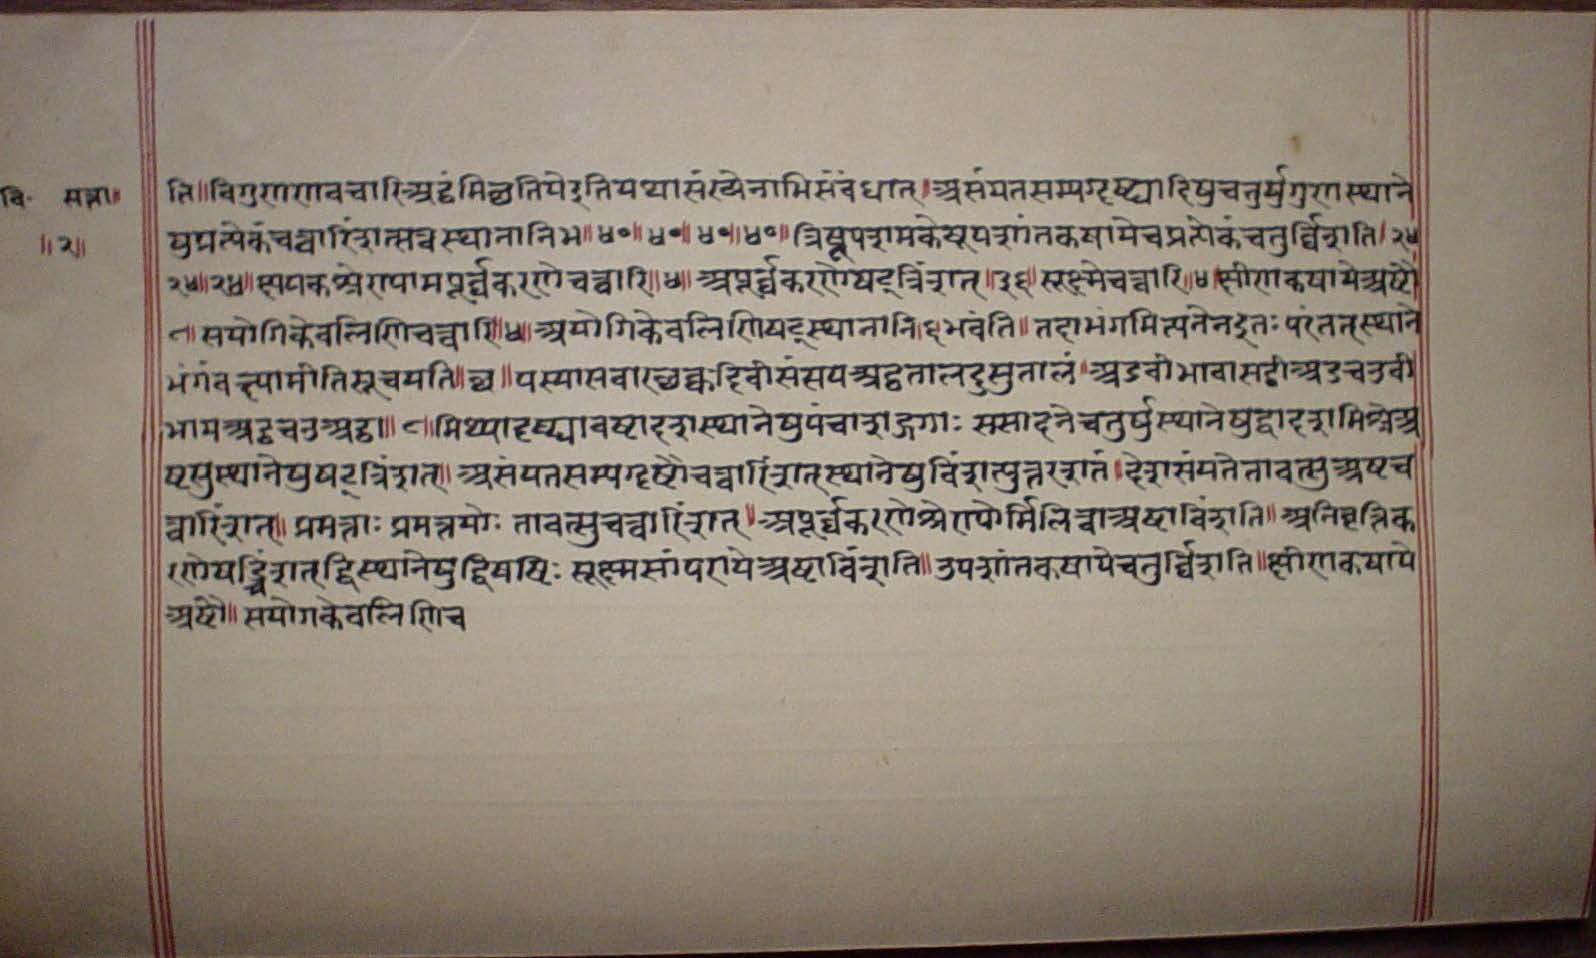 वि॰ सत्ता॥
॥२॥
ति॥ विगुणणवचारिअट्ठं मिछतियेइति यथासंख्येनाभिसंबंधात्। असंयतसम्यग्दृष्ट्यादिषु चतुर्षु गुणस्थाने
षु प्रत्येकं चत्वारिंशत्सत्वस्थानानि भ॥ ४०॥ ४०॥ ४०॥ ४०॥ त्रिषूपशमकेषूपशांतकषाये च प्रत्येकं चतुर्व्विंशति। २४
२४॥ २४॥ क्षपकश्रेण्यामपूर्व्वकरणे चत्वारि॥ ४॥ अपूर्व्वकरणेषट्त्रिंशत्॥ ३६॥ सूक्ष्मे चत्वारि॥ ४॥ क्षीणकषाये अष्टौ
८॥ सयोगिकेवलिणि चत्वारि॥ ४॥ अयोगिकेवलिणि षट्स्थानानि। ६ भवंति॥ तहा भंगमित्यनेन इतः परं तत् स्थाने
भंगं वक्ष्यामीति सूचयति॥ छ॥ पस्यासवारछक्कदिवीसंसयअट्ठतालदुसुतालं। अडवीभावासट्ठीअडचउवी
भामअट्ठचउअट्ठा॥ ८॥ मिथ्यादृष्ट्यावष्टादशस्थानेषु पंचाशद्भंगाः ससादने चतुर्षु स्थानेषु द्वादश मिश्रे अ
ष्टसु स्थानेषु षट्त्रिंशत्॥ असंयतसम्यग्दृष्टौ चत्वारिंशत्स्थानेषु विंशत्युत्तरशतं। देशसंयते तावत्सु अष्टच
त्वारिंशत्॥ प्रमत्ताः प्रमत्तयोः तावत्सु चत्वारिंशत्। अपूर्व्वकरणे श्रेण्योर्मिलित्वा अष्टाविंशति॥ अनिवृत्तिक
रणे षट्त्रिंशत् द्विस्थानेषु द्विषष्टिः सूक्ष्मसांपराये अष्टाविंशति॥ उपशांतकषाये चतुर्व्विंशति॥ क्षीणकषाये
अष्टौ॥ सयोगकेवलिणि च